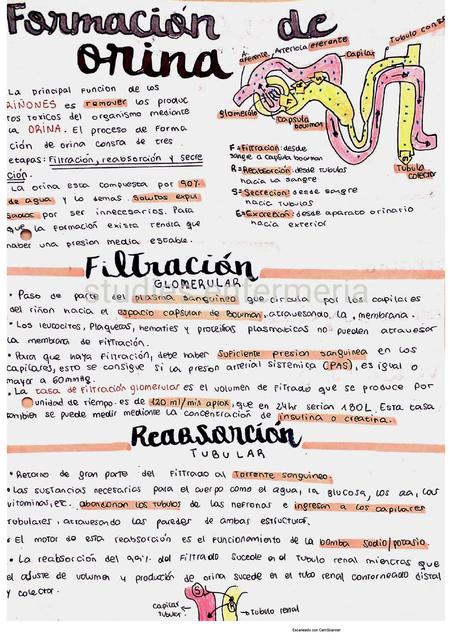 Formación de
orina
La principal función de los
RIÑONES es remover los produc
tos toxicos del organismo mediante
la ORINA. El proceso de forma
ción de orina consta de tres
etapas: Filtración, reabsorción y secre
ción.
La orina esta compuesta por 90%
de agua y lo demas. Solutos expul
sados por ser innecesarios. Para
que la formación exista tendra que
haber una presion media estable.
A. aferente
Arteriola eferente
Capilar
Tubulo cont
glomerulo
capsula
bouman
Tubulo
colector
F=Filtracion: desde
sangre a capsula bouman
R=Reabsorcion: desde tubulos
hacia la sangre
S=Secrecion: desde sangre
hacia tubulos
E=Excreción: desde aparato orinario
hacia exterior
Filtración
GLOMERULAR
studies enfermeria
• Paso de parte del plasma sanguineo que circula por los capilares
del riñon hacia el espacio capsular de Bouman, atravesando la membrana.
• Los leucocitos, plaquetas, hematies y proteinas plasmaticas no pueden atravesar
la membrana de filtración.
• Para que haya filtración, debe haber suficiente presion sanguinea en los
capilares, esto se consigue si la presion arterial sistemica (PAS), es igual o
mayor a 60mmHg.
• La tasa de filtración glomerular es el volumen de filtrado que se produce por
unidad de tiempo. es de 120 ml/min aplox, que en 24hr serian 180L. Esta tasa
tambien se puede medir mediante la concentración de insulina o creatina.
Reabsorción
TUBULAR
• Retorno de gran parte del filtrado al torrente sanguineo.
• Las sustancias necesarias para el cuerpo como el agua, la glucosa, los aa, las
vitaminas, etc. abandonan los tubulos de las nefronas e ingresan a los capilares
tubulares, atravesando las paredes de ambas estructuras.
• El motor de esta reabsorción es el funcionamiento de la bomba sodio/potasio.
• La reabsorción del 99% del filtrado sucede en el tubulo renal mientras que
el ajuste de volumen y producción de orina sucede en el tubo renal contorneado distal
y colector.
capilar
tubular
S
R
tubulo renal
Escaneado con CamScanner